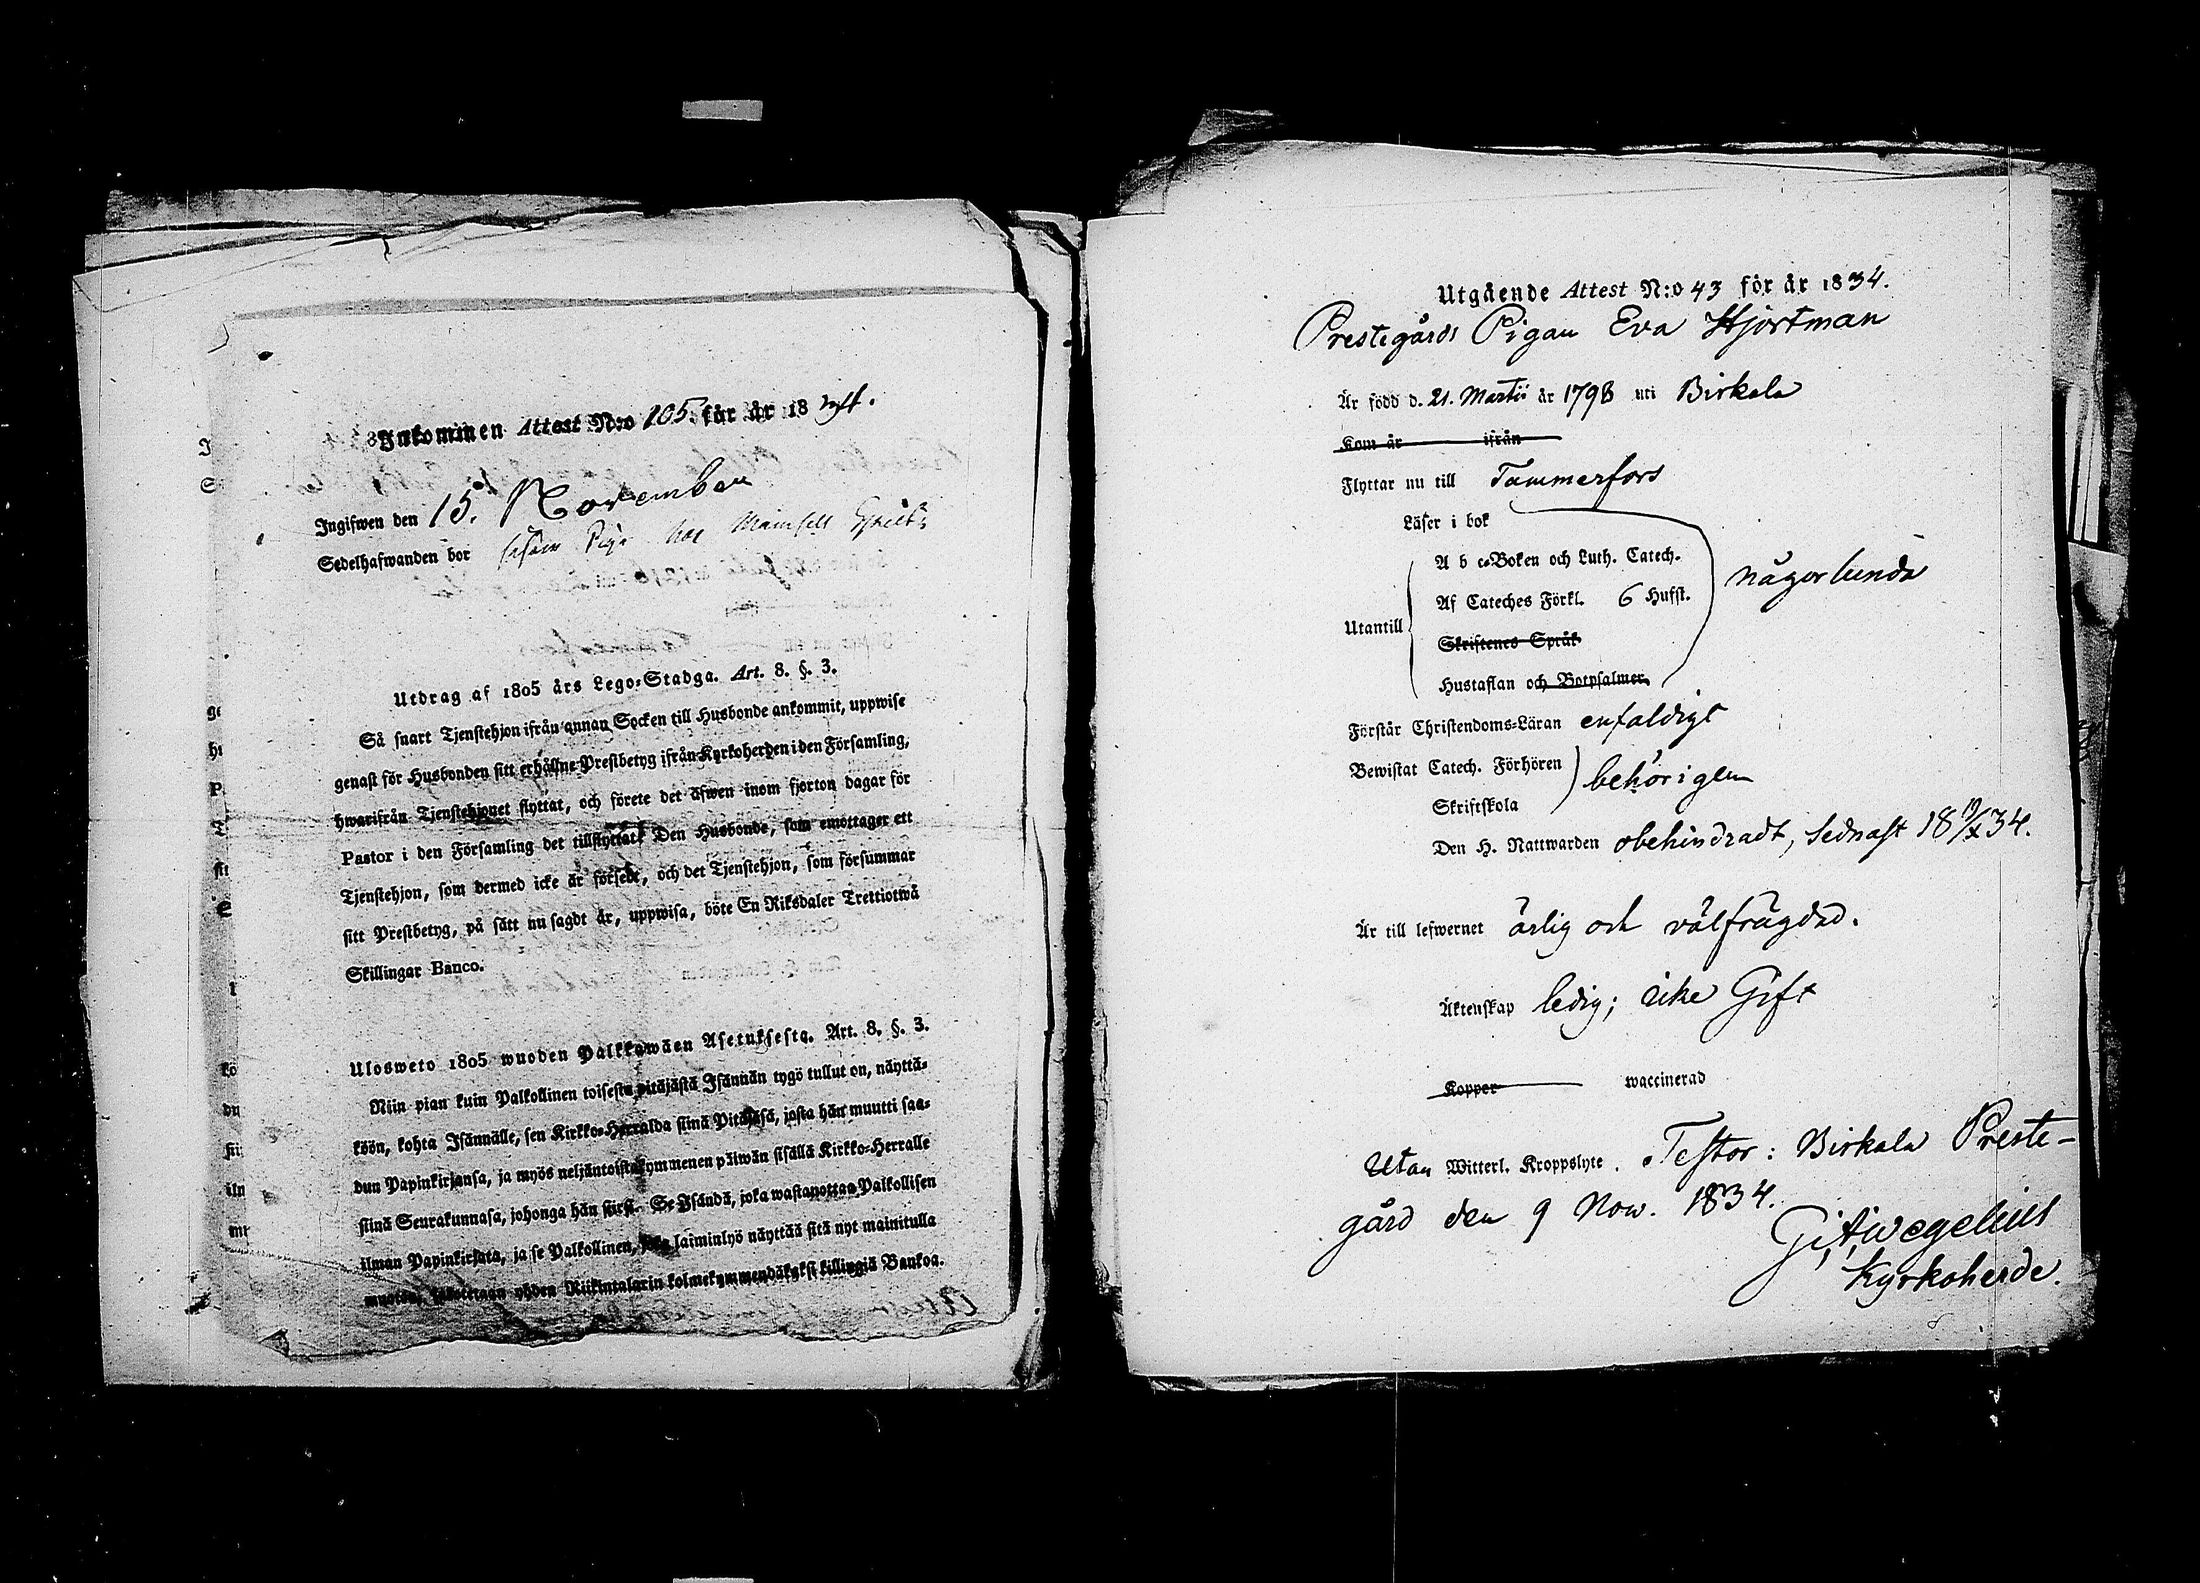 Inkommen Attest N:o 105. för år 18 34.
Ingifwen den 15. November
Sedelhafwanden bor såsom Piga hos Mamsell
Utdrag af 1805 års Lego-Stadga. Art. 8. §. 3.
Så snart Tjenstehjon ifrån annan Socken till Husbonde ankommit, uppwise
genast för Husbonden sitt erhållne Prestbetyg ifrån Kyrkoherden i den Församling,
hwarifrån Tjenstehjonet flyttat, och förete det äfwen inom fjorton dagar för
Pastor i den Församling det tillflyttat. Den Husbonde, som emottager ett
Tjenstehjon, som dermed icke är försedt, och det Tjenstehjon, som försummar
sitt Prestbetyg, på sätt nu sagdt är, uppwisa, böte En Riksdaler Trettiotwå
Skillingar Banco.
Ulosweto 1805 wuoden Palkkawäen Asetuksesta. Art. 8. §. 3.
Niin pian kuin Palkollinen toisesta pitäjästä Isännän tygö tullut on, näyttä-
köön, kohta Isännälle, sen Kirkko-Herralda siinä Pitäjäsä, josta hän muutti saa-
dun Papinkirjansa, ja myös neljäntoistakymmenen päiwän sisällä Kirkko-Herralle
siinä Seurakunnasa, johonga hän siirsi. Se Isändä, joka wastanottaa Palkollisen
ilman Papinkirjata, ja se Palkollinen, joka laiminlyö näyttää sitä nyt mainitulla
muoton, sakotetaan yhden Riikintalarin kolmekymmendäkaksi killingiä Bankoa.
Utgående Attest N:o 43 för år 1834.
Prestegårds Pigan Eva Hjortman
Är född d. 21. Martii år 1798 uti Birkala
Kom år ifrån
Flyttar nu till Tammerfors
Läser i bok
A b c-Boken och Luth. Catech.
Af Cateches Förkl. 6 Hufst. någorlunda
Utantill
Skriftenes Språk
Hustaflan och Botpsalmer.
Förstår Christendoms-Läran enfaldigt
Bewistat Catech. Förhören behörigen
Skriftskola
Den H. Nattwarden obehindradt, sednast 18 19/x 34.
Är till lefwernet ärlig och välfrägdad.
Äktenskap ledig; icke Gift
Kopper waccinerad
Utan Witterl. Kroppslyte. Testor: Birkala Preste-
gård den 9 Nov. 1834.
Kyrkoherde.